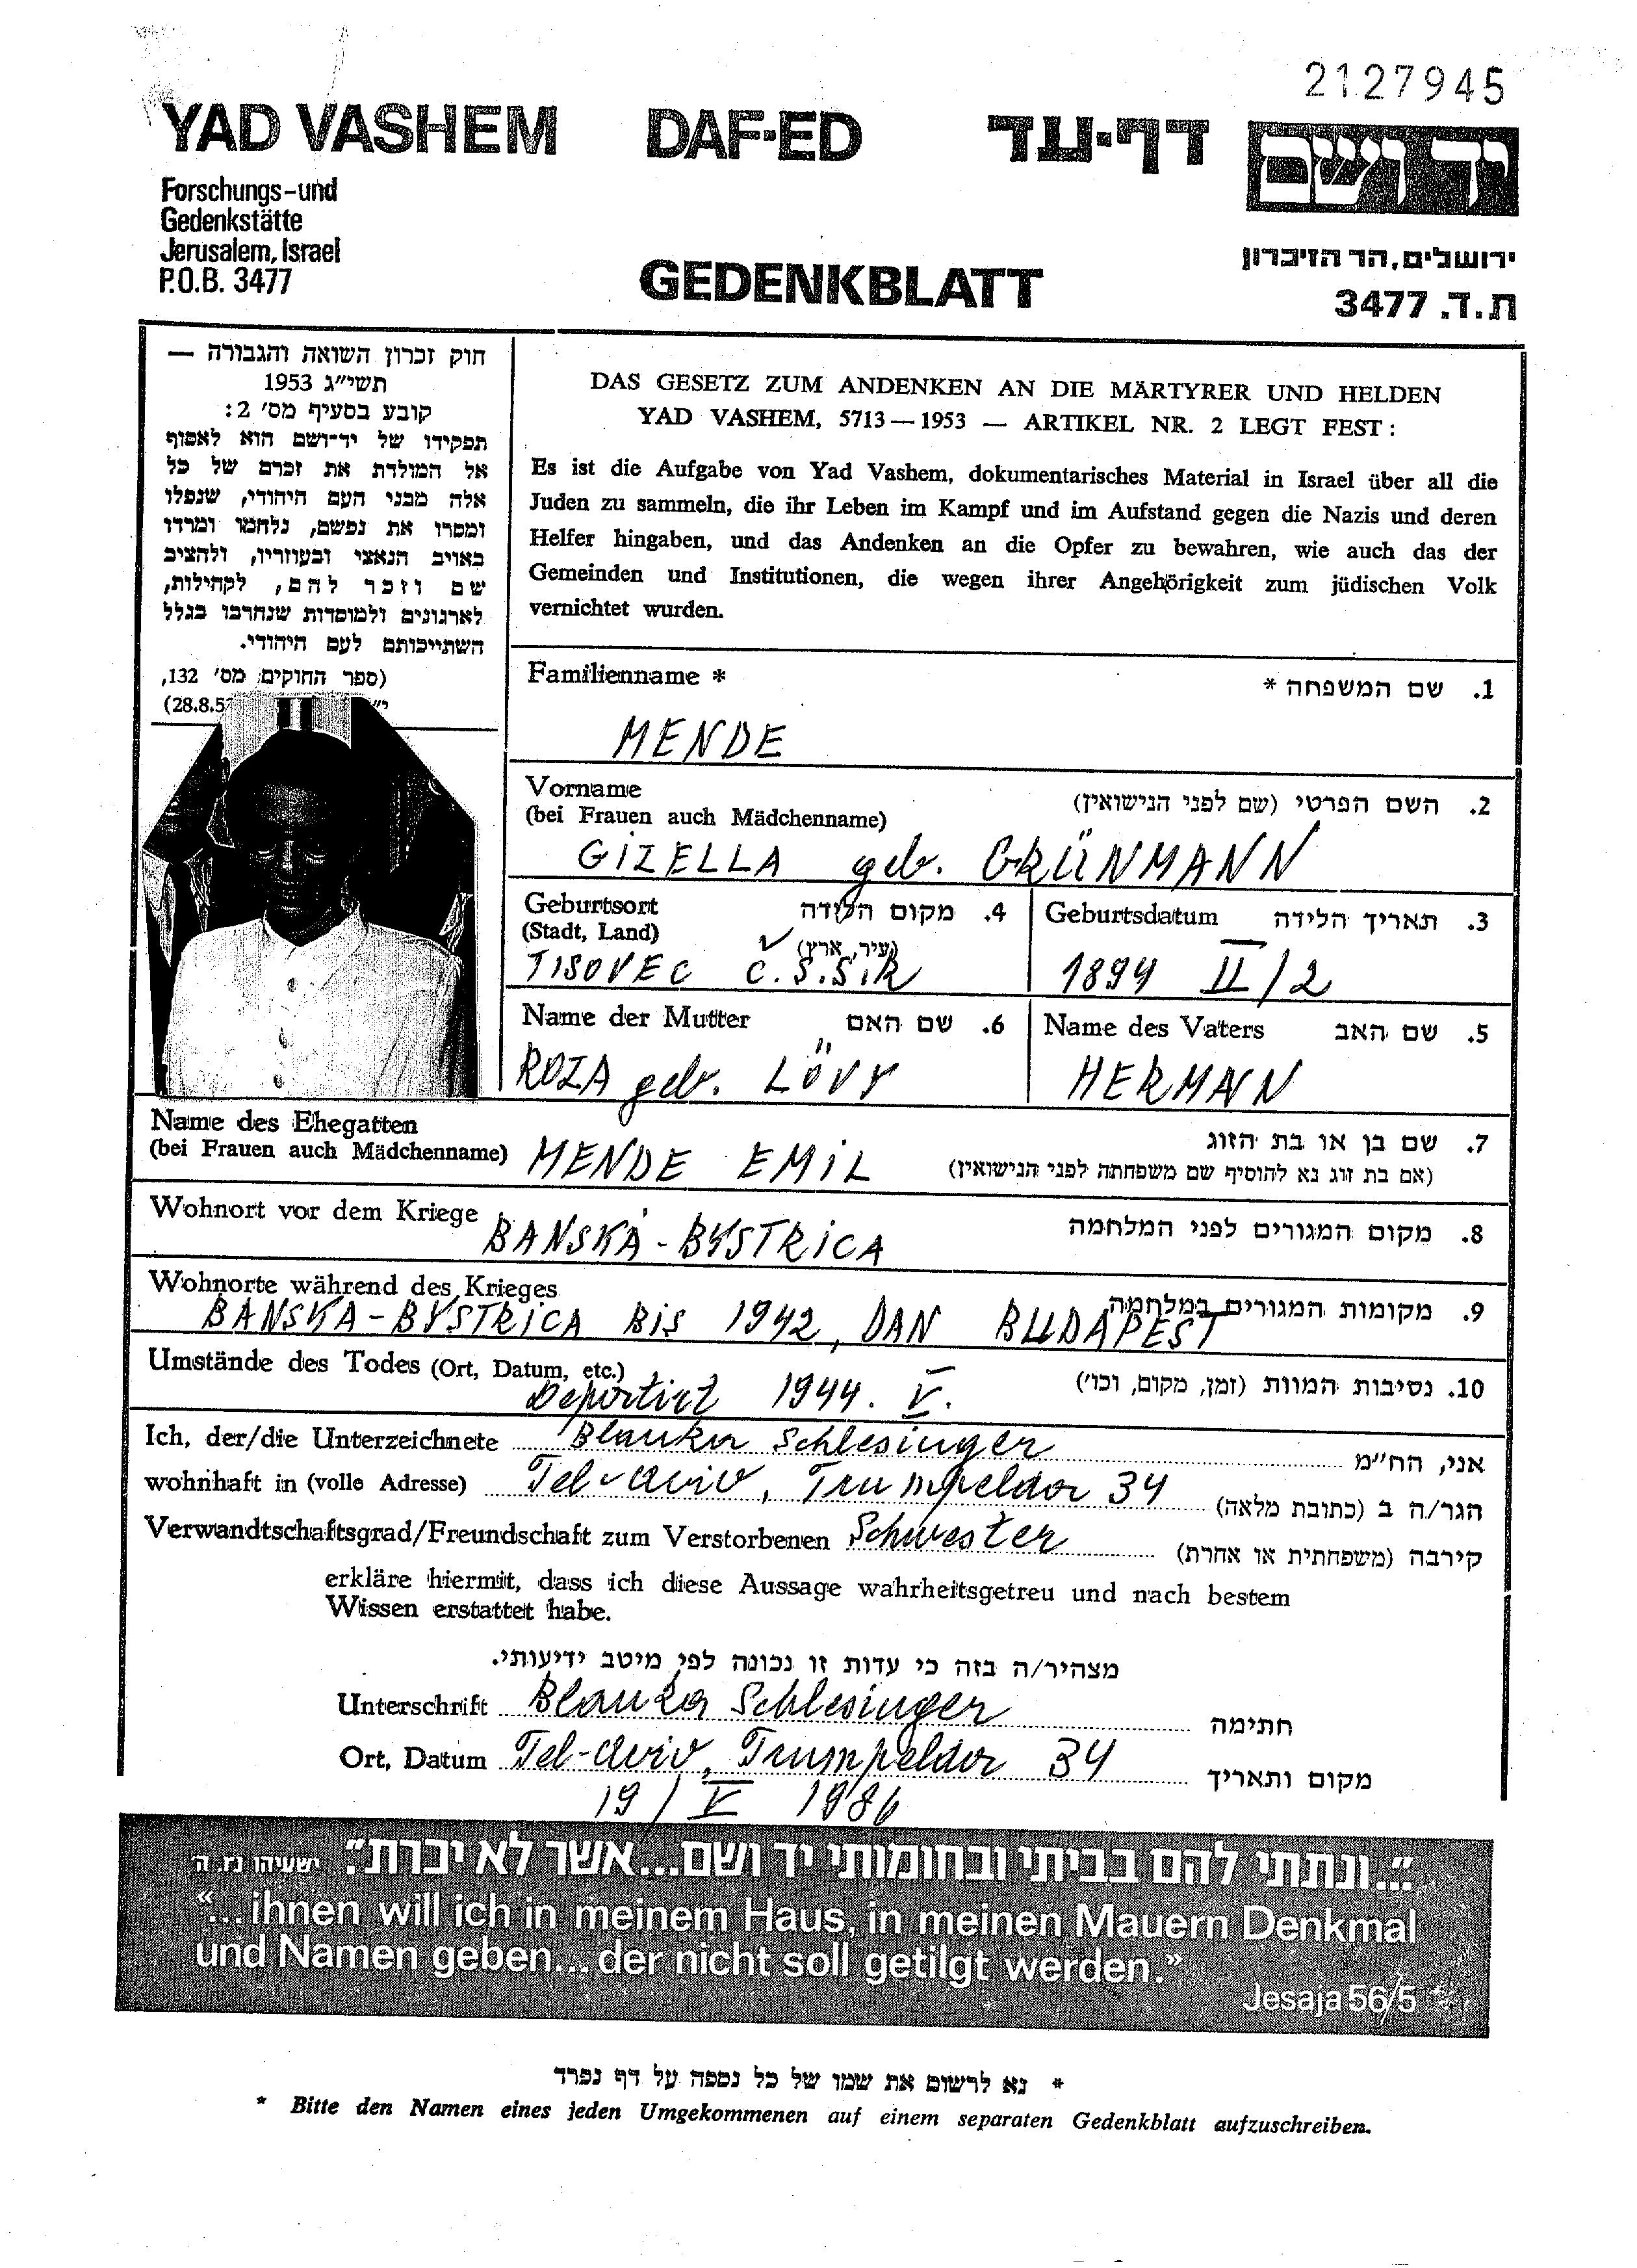 2127945
YAD VASHEM DAF-ED דף-עד יד ושם
Forschungs-und
Gedenkstätte
Jerusalem, Israel
P.O.B. 3477
ירושלים, הר הזיכרון
ת.ד. 3477
GEDENKBLATT
חוק זכרון השואה והגבורה —
תשי"ג 1953
קובע בסעיף מס' 2:
תפקידו של יד-ושם הוא לאסוף
אל המולדת את זכרם של כל
אלה מבני העם היהודי, שנפלו
ומסרו את נפשם, נלחמו ומרדו
באויב הנאצי ובעוזריו, ולהציב
שם וזכר להם, לקהילות,
לארגונים ולמוסדות שנחרבו בגלל
השתייכותם לעם היהודי.
(ספר החוקים מס' 132,
28.8.5)
DAS GESETZ ZUM ANDENKEN AN DIE MÄRTYRER UND HELDEN
YAD VASHEM, 5713 — 1953 — ARTIKEL NR. 2 LEGT FEST:
Es ist die Aufgabe von Yad Vashem, dokumentarisches Material in Israel über all die
Juden zu sammeln, die ihr Leben im Kampf und im Aufstand gegen die Nazis und deren
Helfer hingaben, und das Andenken an die Opfer zu bewahren, wie auch das der
Gemeinden und Institutionen, die wegen ihrer Angehörigkeit zum jüdischen Volk
vernichtet wurden.
Familienname * 1. שם המשפחה *
MENDE
Vorname 2. השם הפרטי (שם לפני הנישואין)
(bei Frauen auch Mädchenname)
GIZELLA geb. GRÜNMANN
Geburtsort 4. מקום הלידה
(Stadt, Land) (עיר, ארץ)
TISOVEC C.S.S.R
Geburtsdatum 3. תאריך הלידה
1894 II/2
Name der Mutter 6. שם האם
ROZA geb. LÖVY
Name des Vaters 5. שם האב
HERMAN
Name des Ehegatten 7. שם בן או בת הזוג
(bei Frauen auch Mädchenname) MENDE EMIL (אם בת זוג נא להוסיף שם משפחתה לפני הנישואין)
Wohnort vor dem Kriege BANSKÁ-BYSTRICA 8. מקום המגורים לפני המלחמה
Wohnorte während des Krieges 9. מקומות המגורים במלחמה
BANSKA-BYSTRICA BIS 1942, DAN BUDAPEST
Umstände des Todes (Ort, Datum, etc.) 10. נסיבות המוות (זמן, מקום, וכו')
Deportirt 1944. V.
Ich, der/die Unterzeichnete Blanka Schlesinger אני, הח"מ
wohnhaft in (volle Adresse) Tel-Aviv, Trumpeldor 34 הגר/ה ב (כתובת מלאה)
Verwandtschaftsgrad/Freundschaft zum Verstorbenen Schwester קירבה (משפחתית או אחרת)
erkläre hiermit, dass ich diese Aussage wahrheitsgetreu und nach bestem
Wissen erstattet habe.
מצהיר/ה בזה כי עדות זו נכונה לפי מיטב ידיעותי.
Unterschrift Blanka Schlesinger חתימה
Ort, Datum Tel-Aviv, Trumpeldor 34 מקום ותאריך
19/V 1986
"...ונתתי להם בביתי ובחומותי יד ושם...אשר לא יכרת". ישעיהו נו, ה
"...ihnen will ich in meinem Haus, in meinen Mauern Denkmal
und Namen geben... der nicht soll getilgt werden."
Jesaja 56/5
* נא לרשום את שמו של כל נספה על דף נפרד
* Bitte den Namen eines jeden Umgekommenen auf einem separaten Gedenkblatt aufzuschreiben.